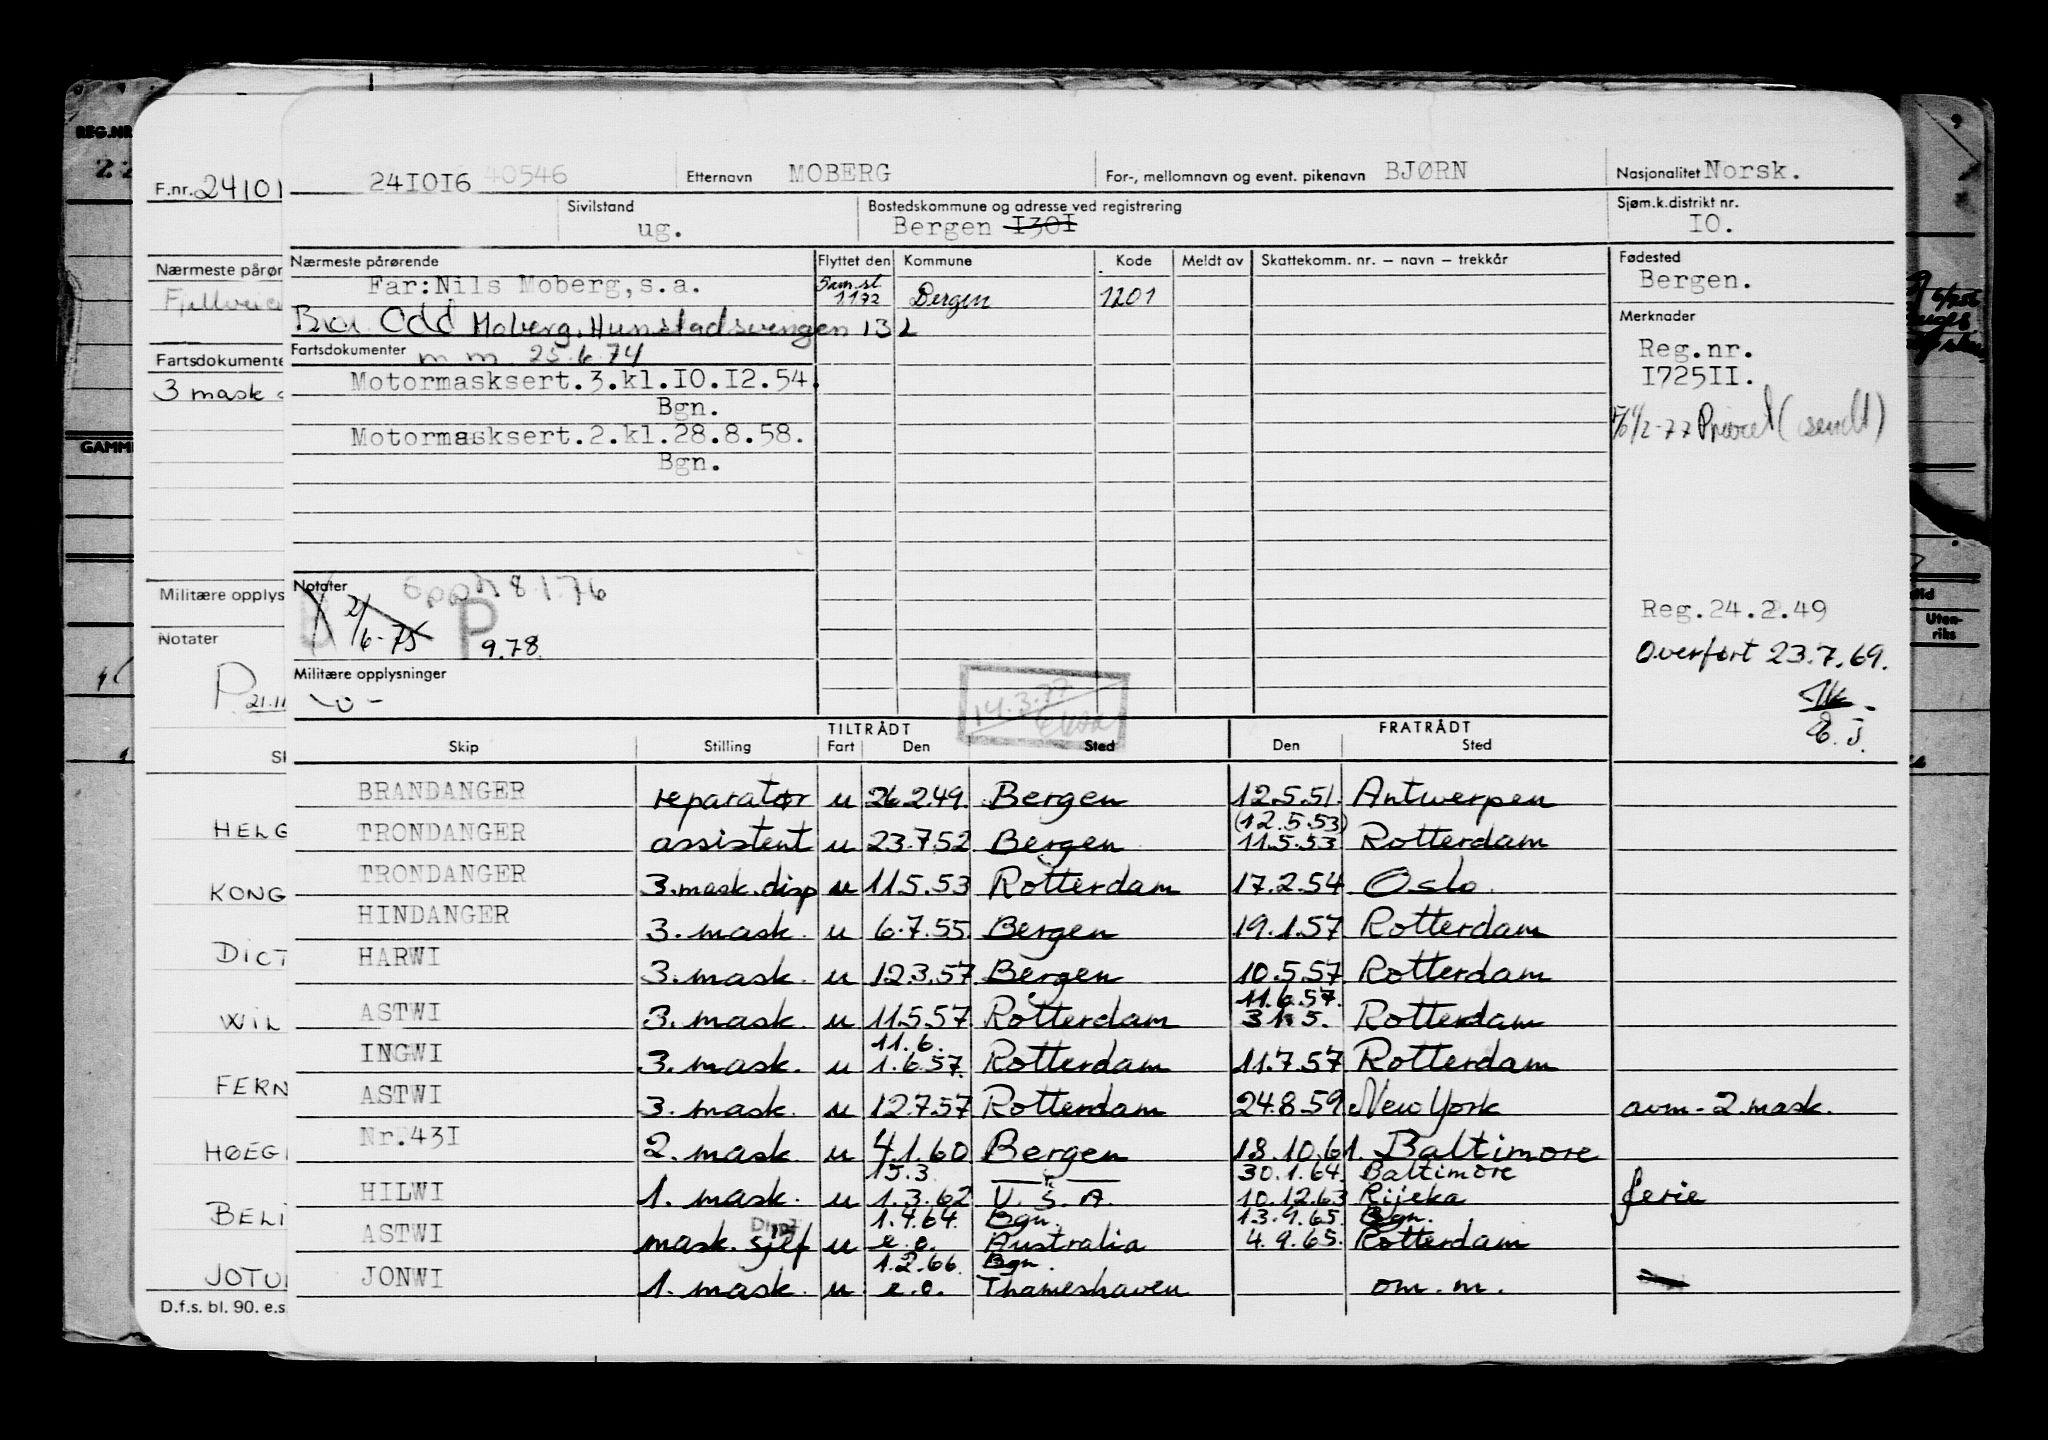 REG.NR
F.nr. 24101
24IOI6 40546
Etternavn MOBERG
For-, mellomnavn og event. pikenavn BJØRN
Nasjonalitet Norsk.
Sivilstand
ug.
Bostedskommune og adresse ved registrering
Bergen I30I
Sjøm.k.distrikt nr.
IO.
Nærmeste pårør
Nærmeste pårørende
Far:Nils Moberg,s.a.
Bror Odd Moberg, Hunstadsvingen 13 L
Flyttet den Kommune Kode Meldt av Skattekomm. nr. – navn – trekkår
Sam.st.
1.1.72 Bergen 1201
Fødested
Bergen.
Merknader
Reg.nr.
I725II.
Privat (sendt)
Fartsdokumente
3 mask
Fartsdokumenter
m m. 25.6.74
Motormasksert.3.kl.IO.I2.54.
Bgn.
Motormasksert.2.kl.28.8.58.
Bgn.
GAMM
Militære opplys
Notater
P 21.11
Notater
Opph 8.1.76
2/6-75 P 9.78.
Militære opplysninger
14.3.77
Reg.24.2.49
Overført 23.7.69.
E.J.
Uten-
riks
TILTRÅDT FRATRÅDT
Skip Stilling Fart Den Sted Den Sted
BRANDANGER reparatør u 26.2.49. Bergen 12.5.51. Antwerpen
(12.5.53)
TRONDANGER assistent u 23.7.52 Bergen 11.5.53 Rotterdam
TRONDANGER 3.mask.disp u 11.5.53 Rotterdam 17.2.54 Oslo
HINDANGER 3. mask. u 6.7.55 Bergen 19.1.57 Rotterdam
HARWI 3. mask. u 12.3.57 Bergen 10.5.57 Rotterdam
11.6.57.
ASTWI 3. mask. u 11.5.57 Rotterdam 31.5. Rotterdam
11.6.
INGWI 3. mask. u 1.6.57. Rotterdam 11.7.57 Rotterdam
ASTWI 3. mask. u 12.7.57 Rotterdam 24.8.59 New York avm-2.mask.
Nr.43I 2. mask. u 4.1.60 Bergen 18.10.61. Baltimore
15.3 30.1.64. Baltimore
HILWI 1. mask. u 1.3.62 U.S.A. 10.12.63 Rijeka ferie
Disp. 1.4.64. Bgn. 13.9.65. Bgn.
ASTWI mask. sjef u e.o. Australia 4.9.65. Rotterdam
1.2.66. Bgn.
JONWI 1. mask. u e.o. Thameshaven om. m.
HELG
KONG
DICT
WIL
FERN
HØEG
BELI
JOTU
D.f.s. bl. 90. e.s.